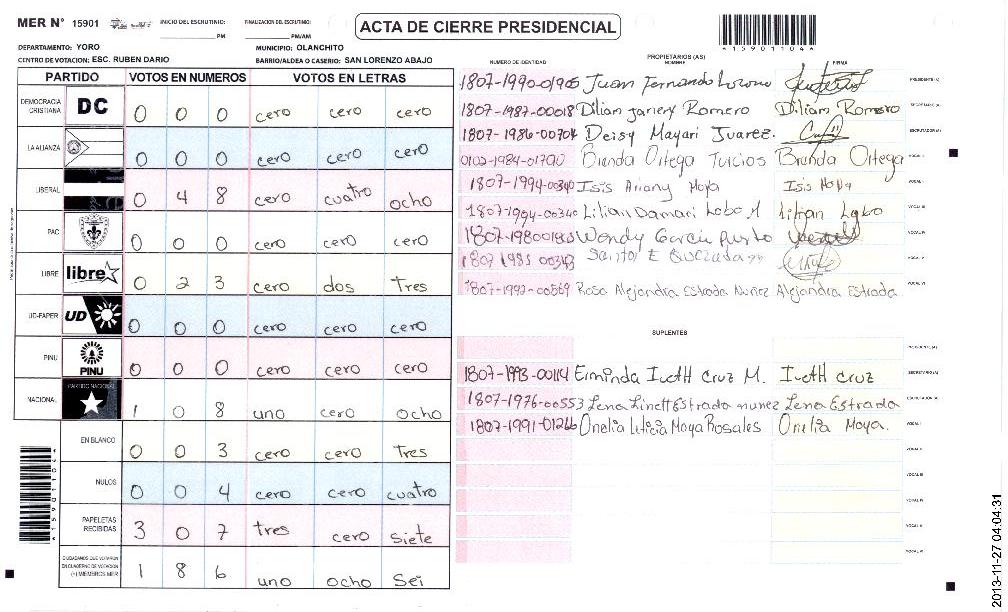 MER N° 15901 INICIO DEL ESCRUTINIO: PM FINALIZACION DEL ESCRUTINIO: PM/AM
ACTA DE CIERRE PRESIDENCIAL
*159011044*
DEPARTAMENTO: YORO MUNICIPIO: OLANCHITO
CENTRO DE VOTACION: ESC. RUBEN DARIO BARRIO/ALDEA O CASERIO: SAN LORENZO ABAJO
PARTIDO VOTOS EN NUMEROS VOTOS EN LETRAS
DEMOCRACIA CRISTIANA DC 0 0 0 cero cero cero
LA ALIANZA 0 0 0 cero cero cero
LIBERAL 0 4 8 cero cuatro ocho
PAC 0 0 0 cero cero cero
LIBRE libre 0 2 3 cero dos Tres
UD-FAPER UD 0 0 0 cero cero cero
PINU PINU 0 0 0 cero cero cero
NACIONAL PARTIDO NACIONAL 1 0 8 uno cero ocho
EN BLANCO 0 0 3 cero cero Tres
NULOS 0 0 4 cero cero cuatro
PAPELETAS RECIBIDAS 3 0 7 tres cero siete
CIUDADANOS QUE VOTARON EN CUADERNO DE VOTACION (+) MIEMBROS MER 1 8 6 uno ocho Sei
NUMERO DE IDENTIDAD PROPIETARIOS (AS) NOMBRE FIRMA
1807-1990-01905 Juan Fernando PRESIDENTE (A)
1807-1987-00018 Dilian Janery Romero Dilian Romero SECRETARIO (A)
1807-1986-00704 Deisy Mayari Juarez. ESCRUTADOR (A)
0102-1984-01790 Brenda Ortega Brenda Ortega VOCAL I
1807-1994-00340 Isis Ariany Moya Isis Moya VOCAL II
1807-1994-00340 Lilian Damari Lobo M Lilian Lobo VOCAL III
Wendy VOCAL IV
1807 1985 00343 Santos E Quezada VOCAL V
1807-1992-00569 Rosa Alejandra Estrada Nuñez Alejandra Estrada VOCAL VI
SUPLENTES
PRESIDENTE (A)
1807-1993-00114 Erminda Iveth Cruz M. Iveth Cruz SECRETARIO (A)
1807-1976-00553 Lena Linett Estrada nunez Lena Estrada ESCRUTADOR (A)
1807-1991-01266 Onelia Leticia Moya Rosales Onelia Moya. VOCAL I
VOCAL II
VOCAL III
VOCAL IV
VOCAL V
VOCAL VI
2013-11-27 04:04:31